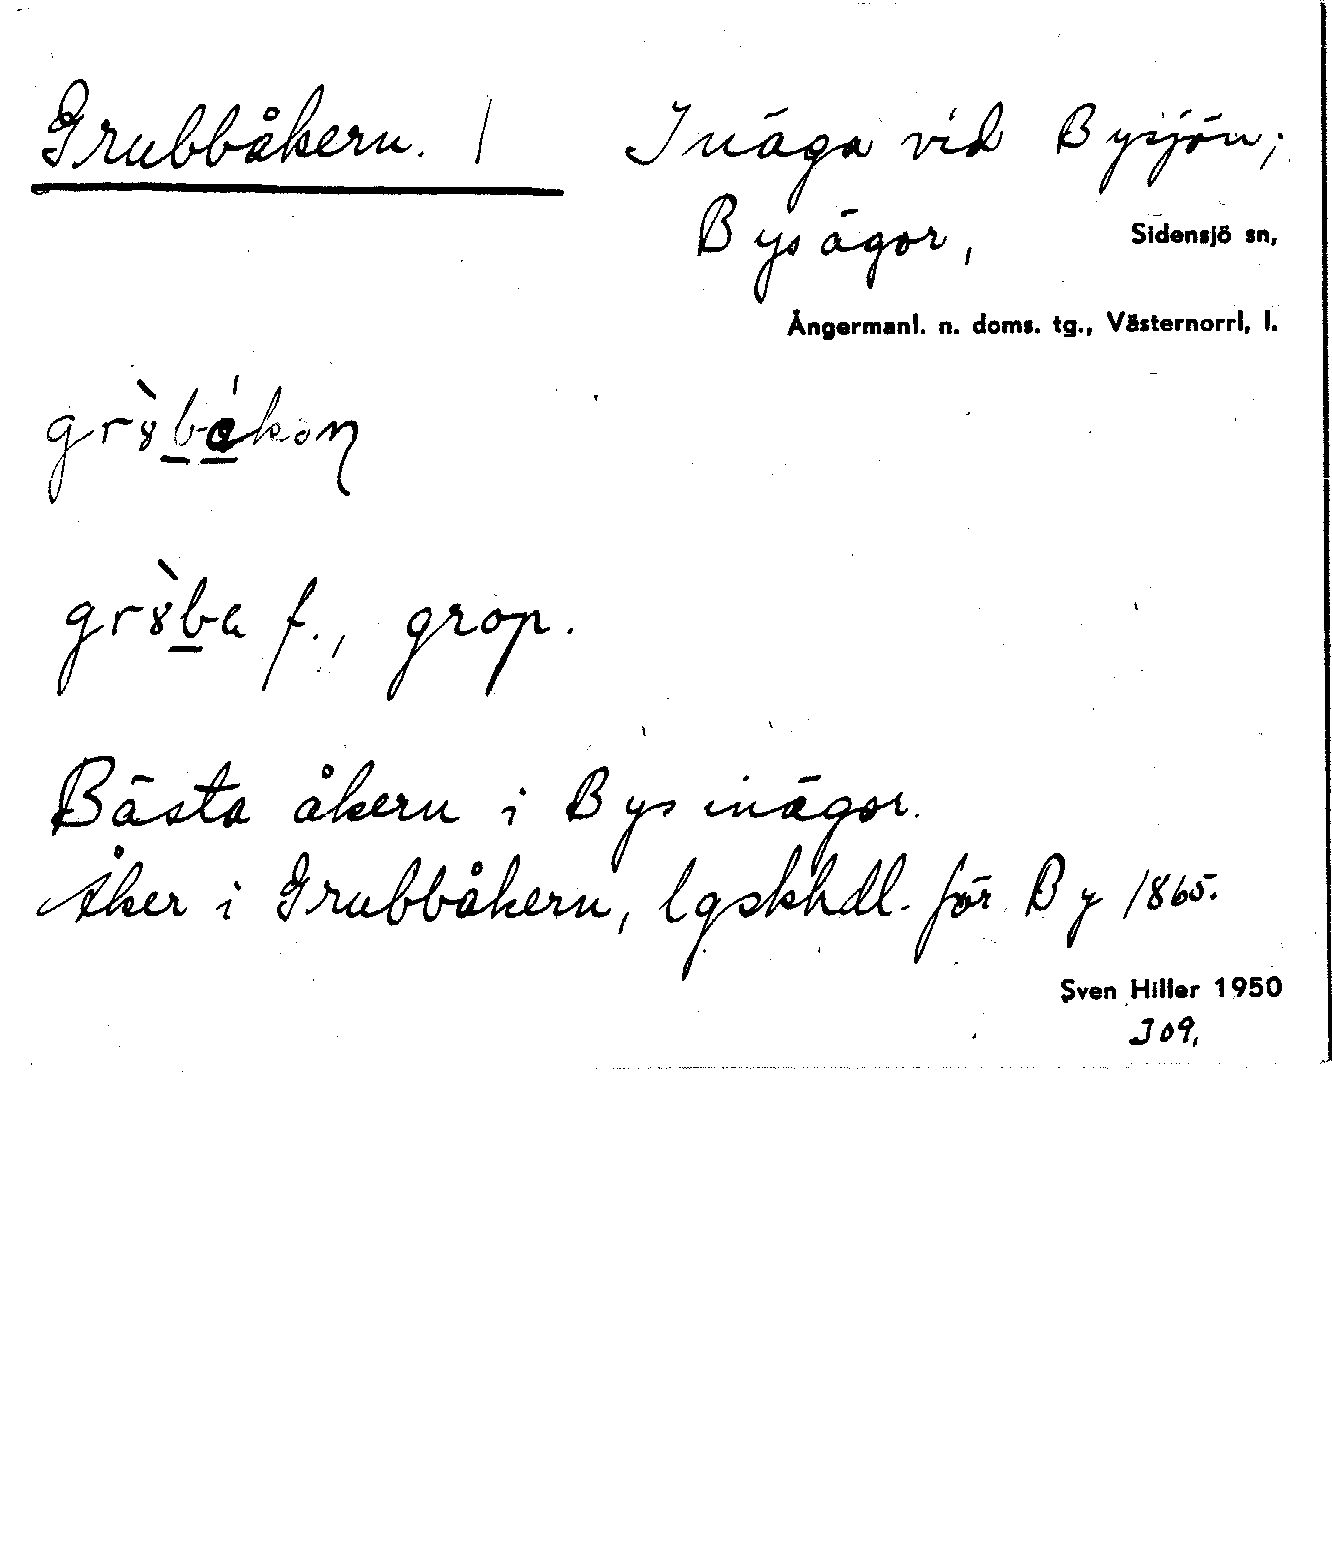 Grubbåkern. / Inäga vid Bysjön;
Bys ägor, Sidensjö sn,
Ångermanl. n. doms. tg., Västernorrl. l.
f., grop.
Bästa åkern i Bys inägor.
Åker i Grubbåkern, lgskhdl. för By 1865.
Sven Hiller 1950
J09.